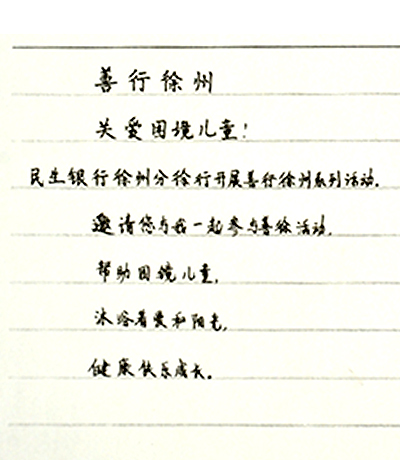 善行徐州
关爱困境儿童！
民生银行徐州分徐行开展善行徐州系列活动，
邀请您与我一起参与善徐活动，
帮助困境儿童，
沐浴着爱和阳光，
健康快乐成长。